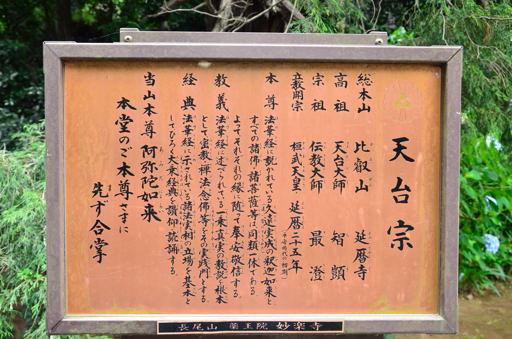 天台宗
総本山 比叡山 延暦寺
高祖 天台大師 智顗
宗祖 伝教大師 最澄
立教開宗 桓武天皇 延暦二十五年
(平安時代初期)
本尊 法華経に説かれている久遠実成の釈迦如来と
すべての諸佛・諸菩薩等は同類一体である
よってそれぞれの縁に随って奉安敬信する。
教義 法華経に述べられている一乗真実の教説を根本
として密教・禅法・念佛等をその実践門とする
経典 法華経に示されている諸法実相の立場を基本と
してひろく大乗経典を讃仰・読誦する。
当山本尊 阿弥陀如来
本堂のご本尊さまに
先ず合掌
長尾山 薬王院 妙楽寺